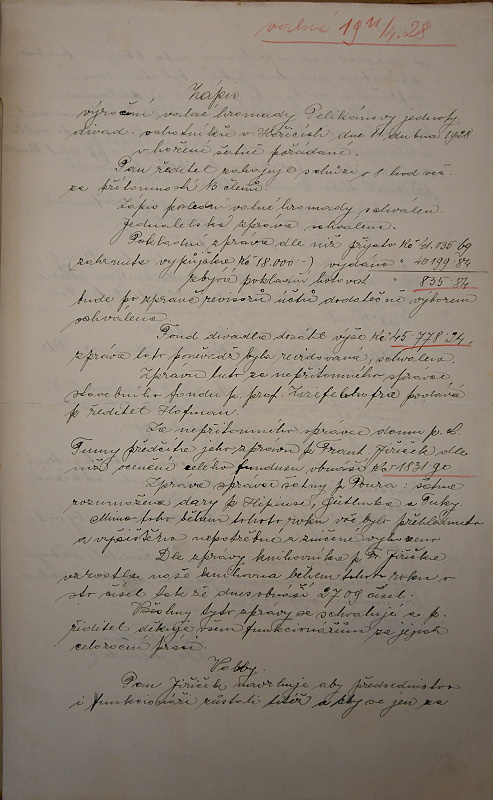 valná 19 11/4. 28
Zápis
výroční valné hromady Pelikánovy jednoty
divad. ochotníků v Hořicích dne 11 dubna 1928
v hoření šatně pořádané.
Pan ředitel zahajuje schůzi o 8 hod več.
za přítomnosti 13 členů.
Zápis poslední valné hromady schválen.
Jednatelská zpráva schválena.
Pokladní zpráva dle níž přijato Kč 41.035 69
zahrnuta výpůjčka Kč 18.000 –) vydáno " 40199 84
zbývá pokladní hotovost " 835 84
bude po zprávě revisorů účtů dodatečně výborem
schválena.
Fond divadla dosáhl výše Kč 45.778 24,
zpráva tato poněvadž byla revidována, schválena.
Zprávu tuto za nepřítomného správce
stavebního fondu p. prof. podává
p. ředitel Hofman.
Za nepřítomného správce domu p. L.
Tumy předčítá jeho zprávu p. Frant. Jiřiček dle
níž ocenění celého fundusu obnáší Kč 51831 90
Zpráva správce šatny p. : šatna
rozmnožena dary p. a
Mimo toho během tohoto roku vše bylo přehlédnuto
a nepotřebné a zničené vyřazeno
Dle zprávy knihovníka p. Fr. Jiřička
vzrostla naše knihovna během tohoto roku o
sto čísel tak že dnes obnáší 2709 čísel.
Všechny tyto zprávy se schvalují a p.
ředitel děkuje všem funkcionářům za jejich
celoroční práci.
Volby.
Pan Jiřiček navrhuje aby předsednictvo
i funkcionáři zůstali titíž a aby se jen za